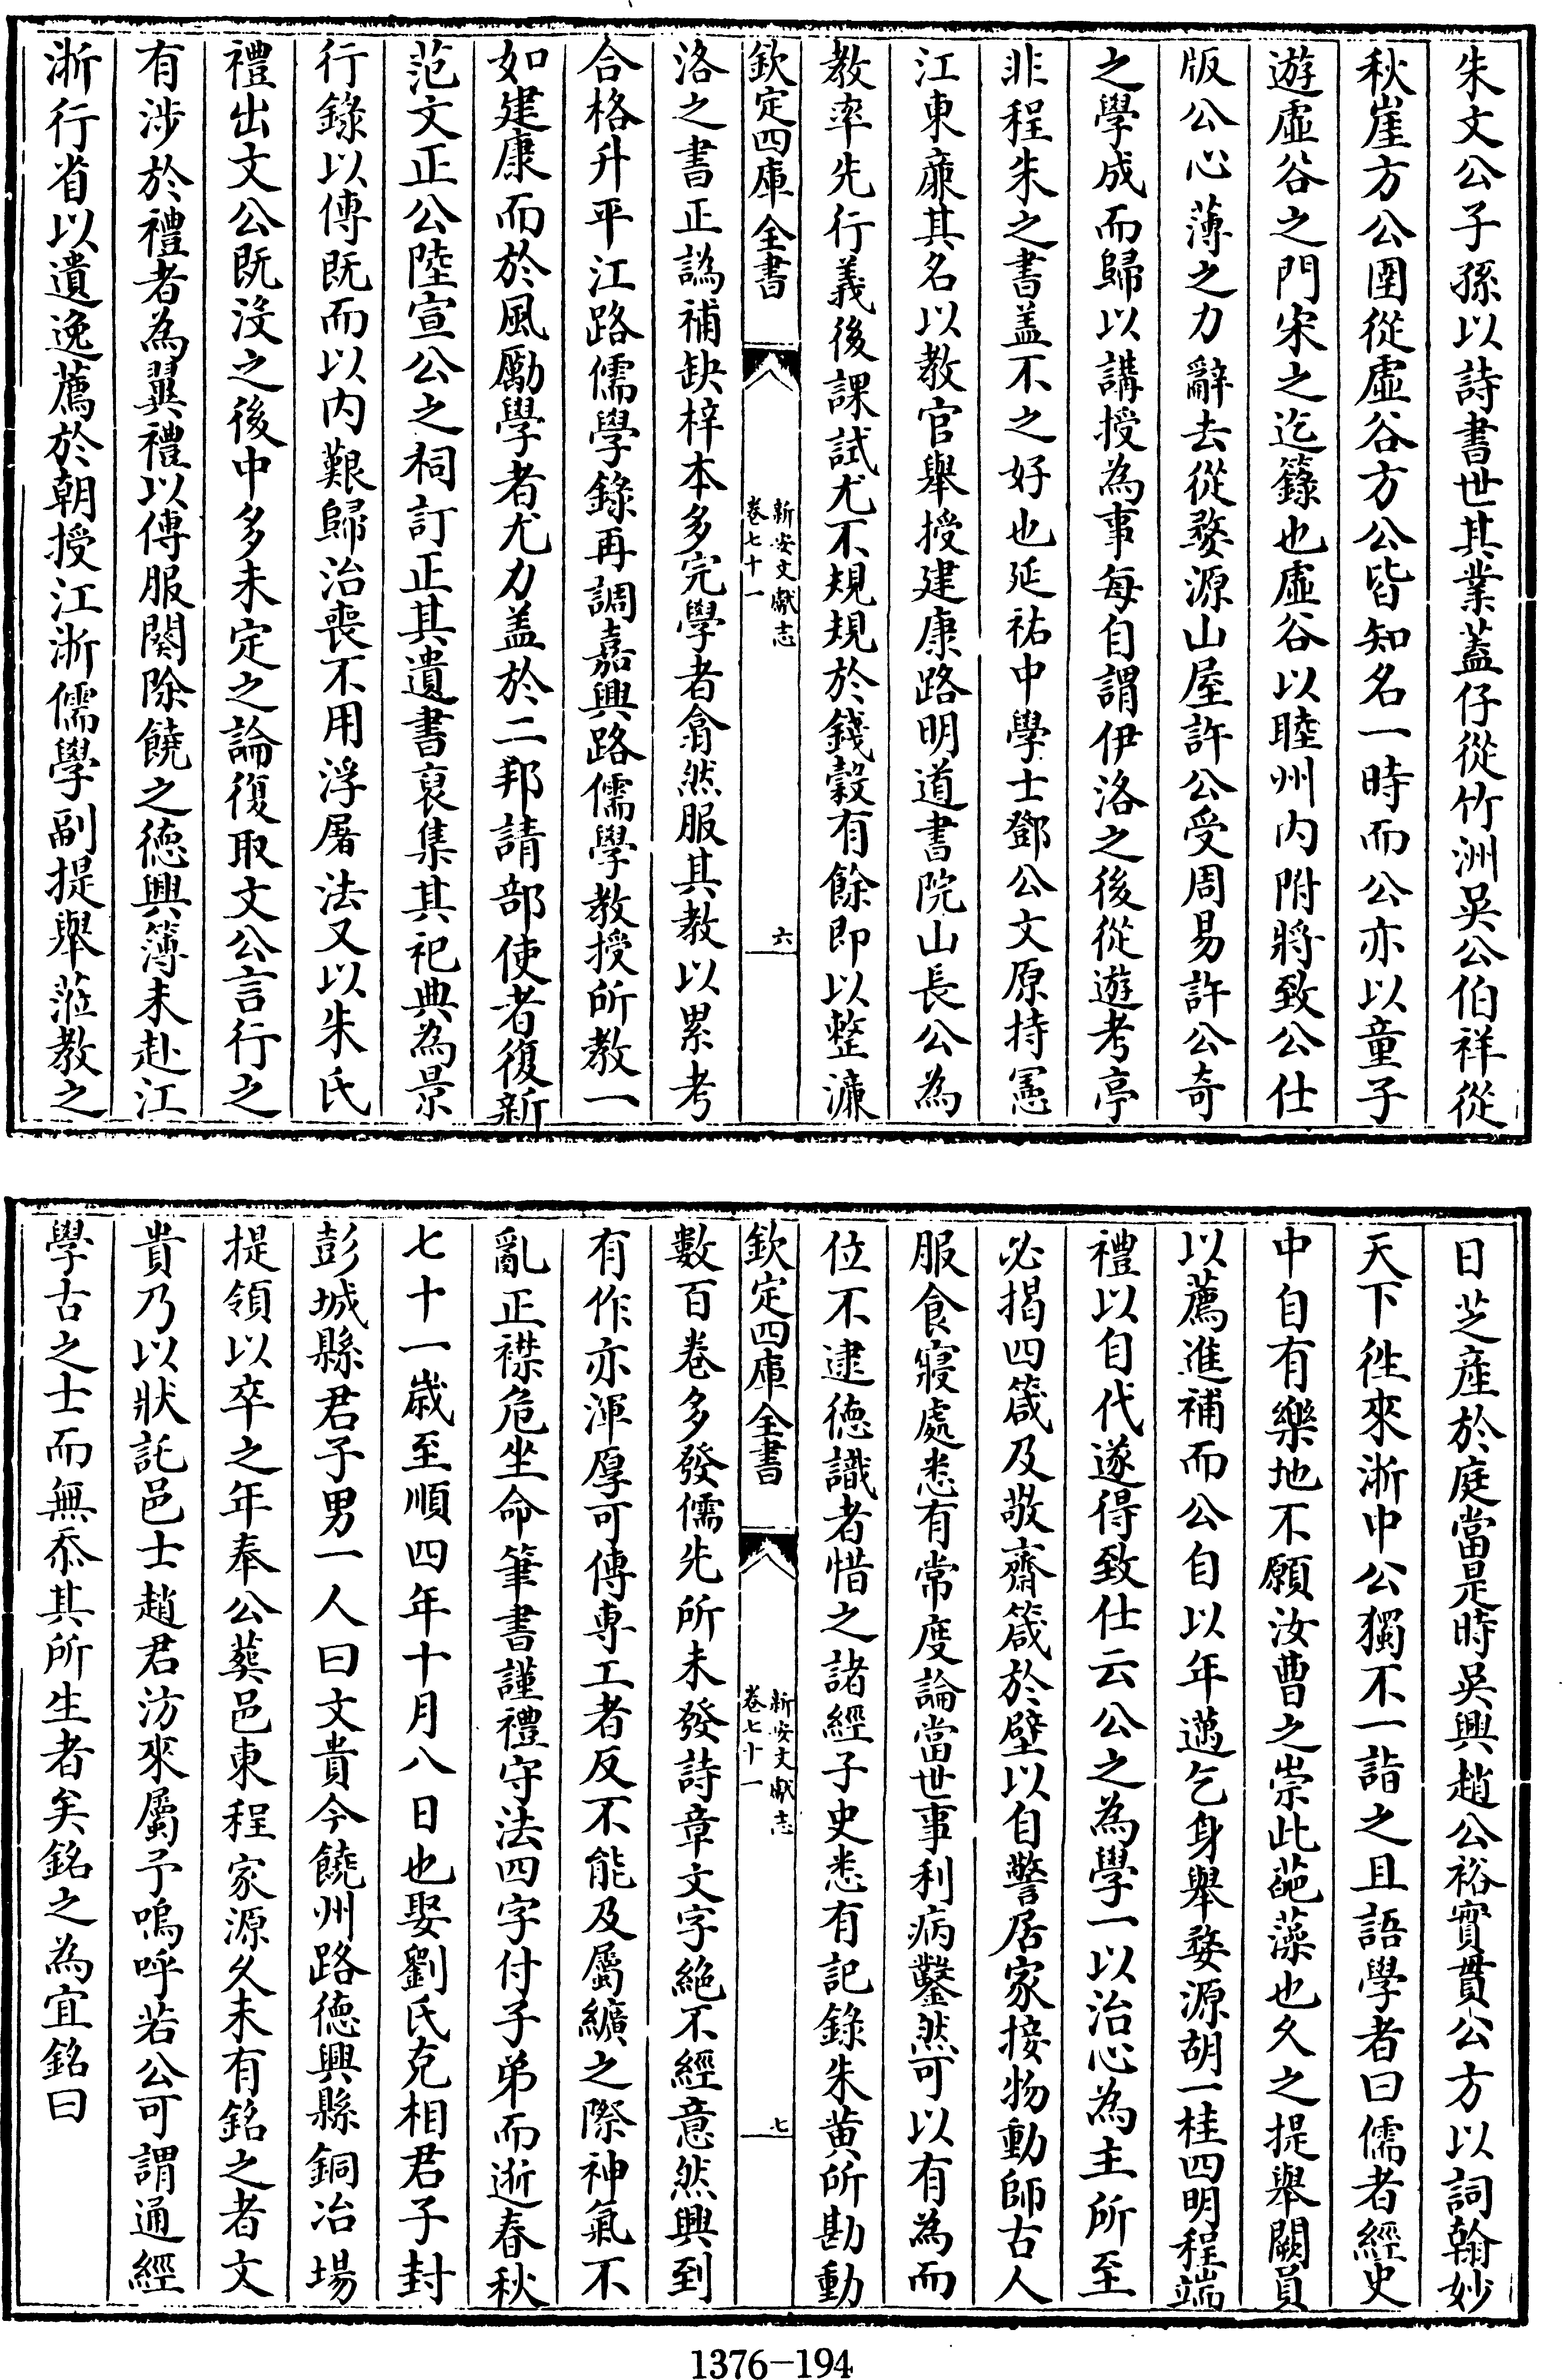 朱文公子孫以詩書世其業蓋仔從竹洲吳公伯祥從
秋崖方公圉從虛谷方公皆知名一時而公亦以童子
遊虛谷之門宋之迄籙也虛谷以睦州内附將致公仕
版公心薄之力辭去從婺源山屋許公受周易許公奇
之學成而歸以講授為事每自謂伊洛之後從遊考亭
非程朱之書盖不之好也延祐中學士鄧公文原持憲
江東亷其名以教官舉授建康路明道書院山長公為
教率先行義後課試尤不規規於錢穀有餘即以整濂
欽定四庫全書
新安文獻志
卷七十一
六
洛之書正譌補缺梓本多完學者翕然服其教以累考
合格升平江路儒學錄再調嘉興路儒學教授所教一
如建康而於風勵學者尤力盖於二邦請部使者復新
范文正公陸宣公之祠訂正其遺書裒集其祀典為景
行錄以傳既而以内艱歸治喪不用浮屠法又以朱氏
禮出文公既沒之後中多未定之論復取文公言行之
有涉於禮者為翼禮以傳服闋除饒之徳興簿未赴江
浙行省以遺逸薦於朝授江浙儒學副提舉蒞教之
日芝産於庭當是時吳興趙公裕實貫公方以詞翰妙
天下徃來浙中公獨不一詣之且語學者曰儒者經史
中自有樂地不願汝曹之崇此葩藻也久之提舉闕員
以薦進補而公自以年邁乞身舉婺源胡一桂四明程端
禮以自代遂得致仕云公之為學一以治心為主所至
必揭四箴及敬齋箴於壁以自警居家接物動師古人
服食寢處悉有常度論當世事利病鑿然可以有為而
位不逮徳識者惜之諸經子史悉有記錄朱黄所勘動
欽定四庫全書
新安文獻志
卷七十一
七
數百巻多發儒先所未發詩章文字絶不經意然興到
有作亦渾厚可傳専工者反不能及屬纊之際神氣不
亂正襟危坐命筆書謹禮守法四字付子弟而逝春秋
七十一歳至順四年十月八日也娶劉氏克相君子封
彭城縣君子男一人曰文貴今饒州路徳興縣銅冶場
提領以卒之年奉公葬邑東程家源久未有銘之者文
貴乃以狀託邑士趙君汸來屬予嗚呼若公可謂通經
學古之士而無忝其所生者矣銘之為宜銘曰
1376-194